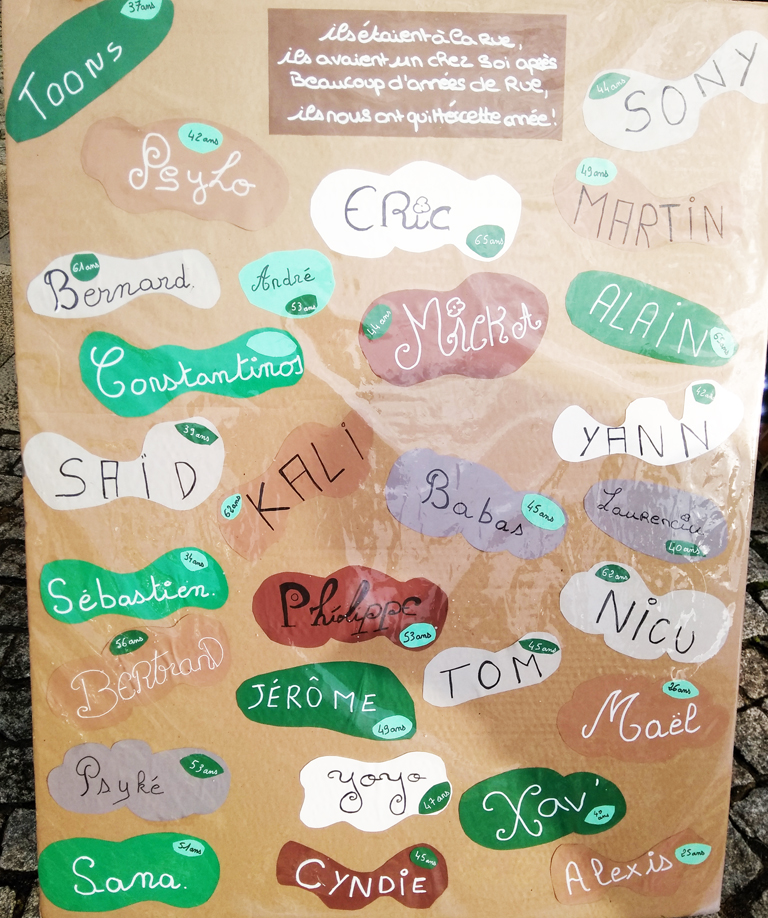 37 ans
TOONS
ils étaient à la Rue,
ils avaient un chez soi après
Beaucoup d'années de Rue,
ils nous ont quittés cette année !
44 ans
SONY
42 ans
Psylo
ERic
65 ans
49 ans
MARTiN
61 ans
Bernard.
André
53 ans
44 ans
MickA
ALAiN
Constantinos
39 ans
SAÏD
KALi
62 ans
42 ans
YANN
Babas
45 ans
Laurenciu
40 ans
34 ans
Sébastien.
Philippe
53 ans
62 ans
NiCU
56 ans
BERtranD
JÉRÔME
49 ans
45 ans
TOM
26 ans
Maël
53 ans
Psyké
yoyo
47 ans
Xav'
ans
51 ans
Sana.
45 ans
CYNDiE
Alexis
25 ans